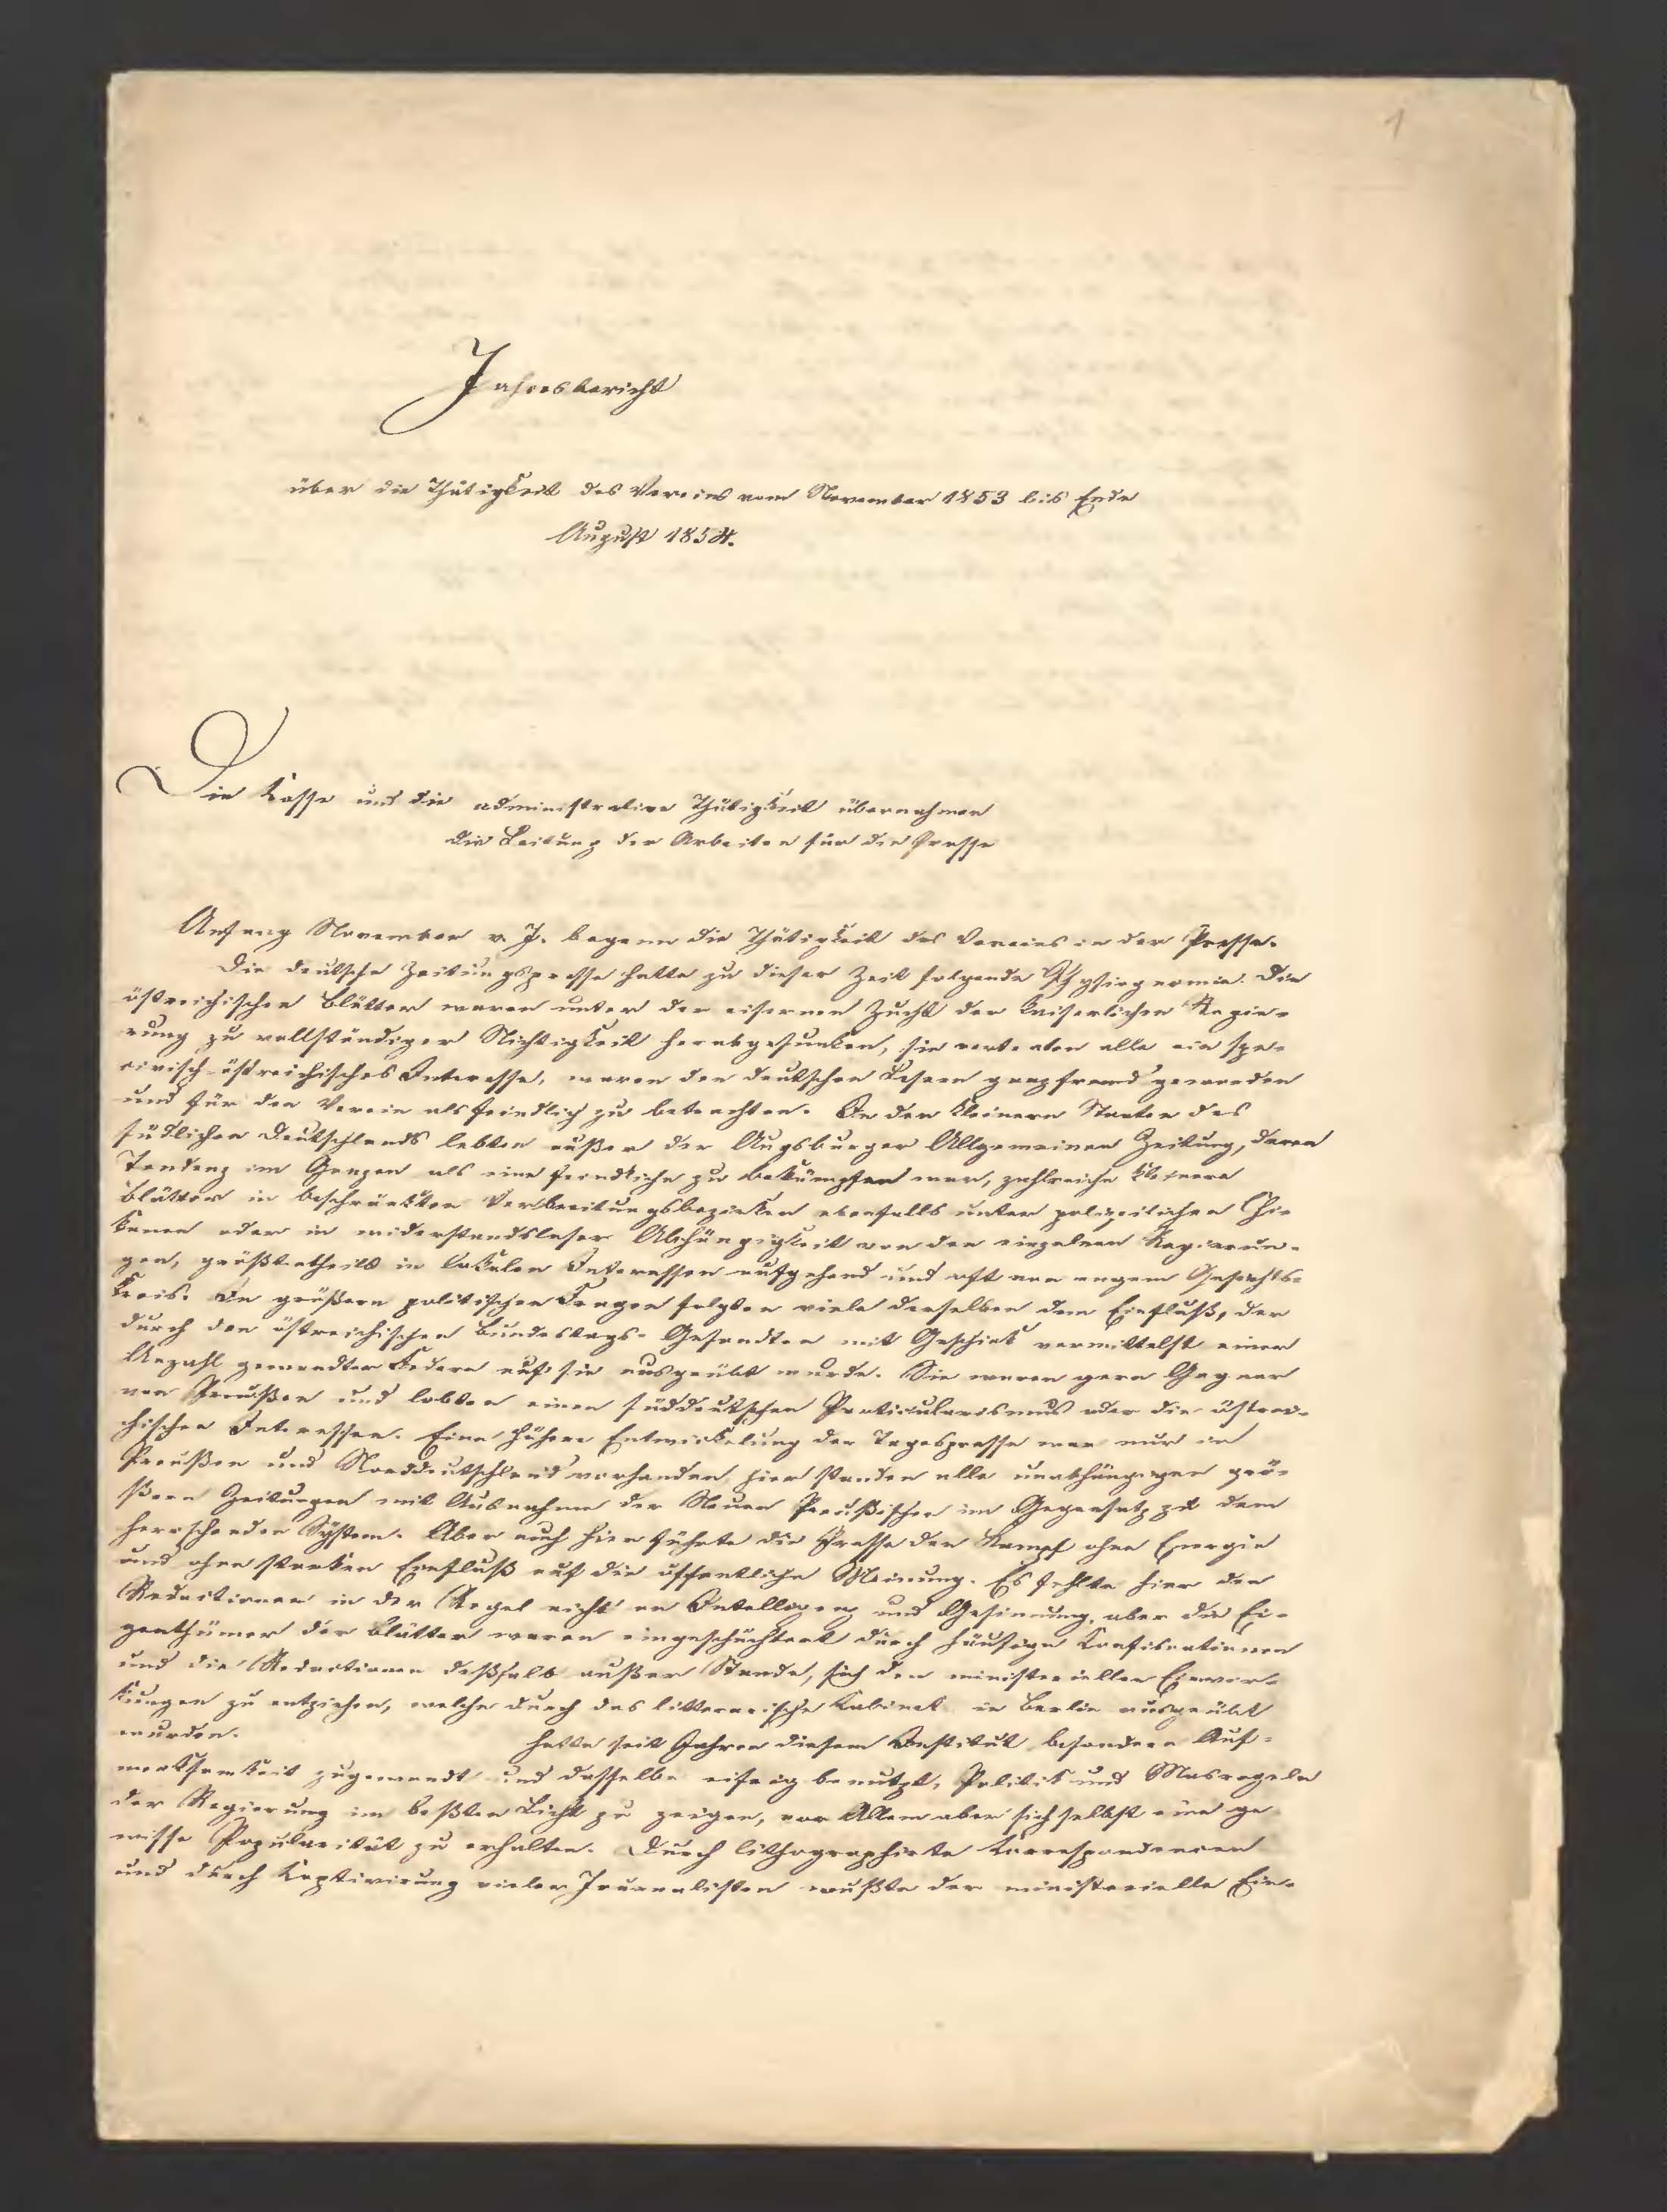 1
Jahresbericht
über die Thätigkeit des Vereins vom November 1853 bis Ende
August 1854.
Die Kasse und die administrative Thätigkeit übernahmen
die Leitung der Arbeiten für die Presse
Anfang November v. J. begann die Thätigkeit des Vereins in der Presse.
Die deutsche Zeitungspresse hatte zu dieser Zeit folgende Physiognomie. Die
östreichischen Blätter waren unter der eisernen Zucht der Kaiserlichen Regie-
rung zu vollständiger Nichtigkeit herabgesunken, sie vertraten alle ein spe-
civisch-östreichisches Interesse, waren den deutschen Lesern ganz fremd geworden
und für den Verein als feindlich zu betrachten. In den kleinern Staaten des
südlichen Deutschlands lebten außer der Augsburger Allgemeinen Zeitung, deren
Tendenz im Ganzen als eine feindliche zu bekämpfen war, zahlreiche kleinere
Blätter in beschränkten Verbreitungsbezirken ebenfalls unter polizeilichen Chi-
kanen oder in widerstandsloser Abhängigkeit von den einzelnen Regierun-
gen, größtentheils in lokalen Interessen aufgehend und oft von engem Gesichts-
kreis. In größern politischen Fragen folgten viele derselben dem Einfluß, der
durch den östreichischen Bundestags-Gesandten mit Geschick vermittelst einer
Anzahl gewandter Federn auf sie ausgeübt wurde. Sie waren gern Gegner
von Preußen und lobten einen süddeutschen Particularismus oder die östrei-
chischen Interessen. Eine höhere Entwickelung der Tagespresse war nur in
Preußen und Norddeutschland vorhanden, hier standen alle unabhängigen grö-
ßern Zeitungen mit Ausnahme der Neuen Preußischen im Gegensatz zu dem
herrschenden System. Aber auch hier führte die Presse den Kampf ohne Energie
und ohne starken Einfluß auf die öffentliche Meinung. Es fehlte hier den
Redactionen in der Regel nicht an Intelligenz und Gesinnung, aber die Ei-
genthümer der Blätter waren eingeschüchtert durch häufige Konfiscationen
und die Redactionen deßhalb außer Stande, sich den ministeriellen Einwir-
kungen zu entziehen, welche durch das litterarische Kabinet in Berlin ausgeübt
wurden. hatte seit Jahren diesem Institut besondere Auf-
merksamkeit zugewandt und dasselbe eifrig benutzt, Politik und Masregeln
der Regierung im beßten Licht zu zeigen, vor Allem aber sich selbst eine ge
wisse Popularität zu erhalten. Durch lithographirte Korrespondencen
und durch Kaptivirung vieler Journalisten wußte der ministerielle Ein-